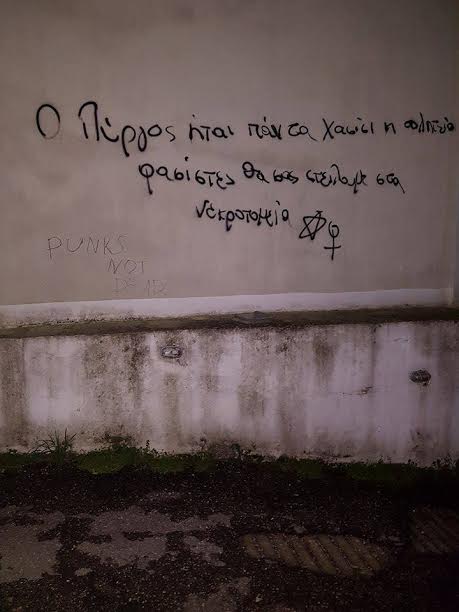 Ο Πύργος ήται πάντα χασίσι η αλητεία
φασίστες θα σας στείλουμε στα
νεκροτομεία
PUNKS
NOT
DEAD